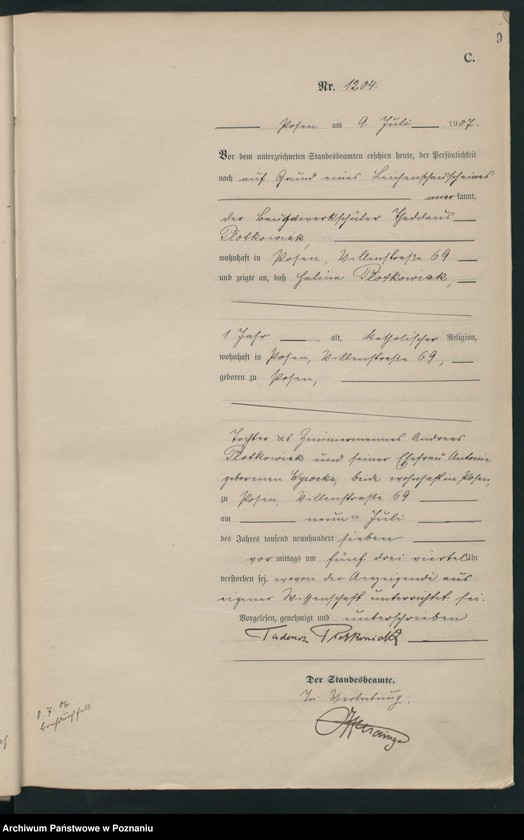 C.
Nr. 1204.
Posen am 9. Juli 1907.
Vor dem unterzeichneten Standesbeamten erschien heute, der Persönlichkeit
nach auf Grund eines Leichenschauscheines
anerkannt,
der Baugewerkschüler Thaddäus
Plotkowiak,
wohnhaft in Posen, Villenstraße 69
und zeigte an, daß Halina Plotkowiak,
1 Jahr alt, katholischer Religion,
wohnhaft in Posen, Villenstraße 69,
geboren zu Posen,
Tochter des Zimmermannes Andreas
Plotkowiak und seiner Ehefrau Antonie
geborenen Wysocka, beide wohnhaft in Posen,
zu Posen, Villenstraße 69
am neunten Juli
des Jahres tausend neunhundert sieben
vormittags um fünf drei viertel Uhr
verstorben sei, wovon der Anzeigende aus
eigener Wissenschaft unterrichtet sei.
Vorgelesen, genehmigt und unterschrieben
Tadeusz Plotkowiak
Der Standesbeamte.
In Vertretung.
8. 7. 06
Brechdurchfall
Archiwum Państwowe w Poznaniu